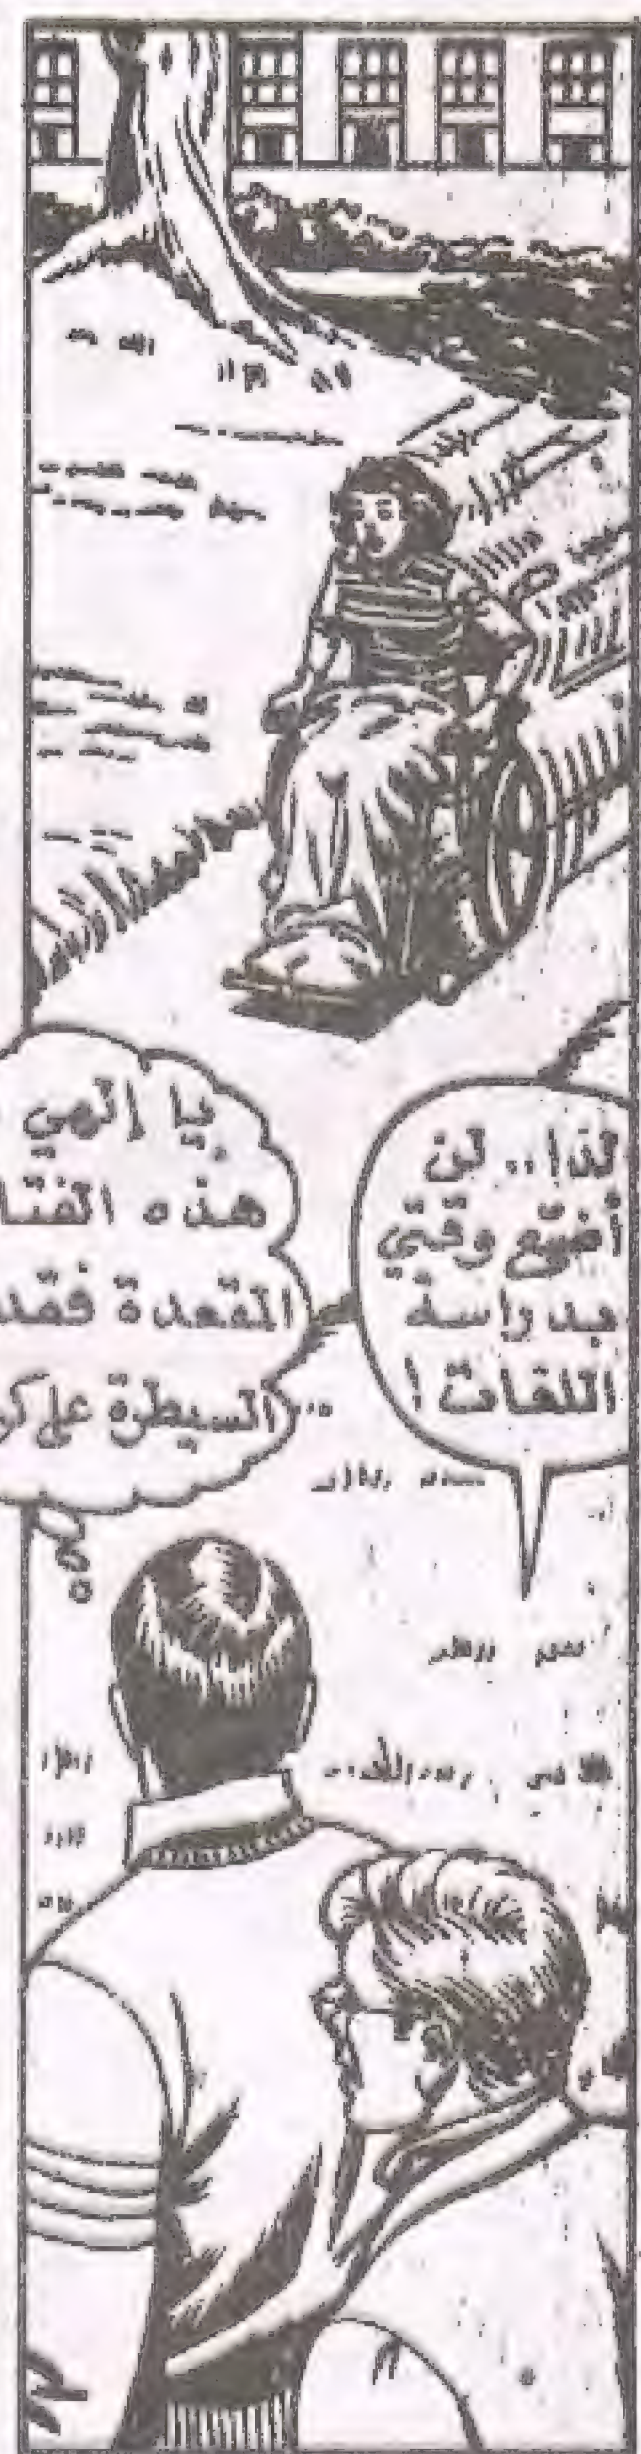 لذا.. لن
أضيّع وقتي
بدراسة
اللغات !
يا إلهي
هذه الفتا
المقعدة فقد
السيطرة على كر
...